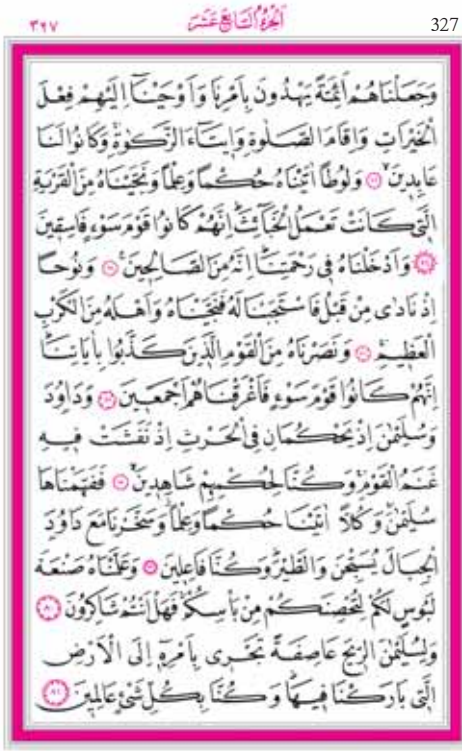 ٣٢٧ اَلْجُزْءُ السَّابِعَ عَشَرَ 327
وَجَعَلْنَاهُمْ اَئِمَّةً يَهْدُونَ بِاَمْرِنَا وَاَوْحَيْنَٓا اِلَيْهِمْ فِعْلَ
الْخَيْرَاتِ وَاِقَامَ الصَّلٰوةِ وَا۪يتَٓاءَ الزَّكٰوةِۚ وَكَانُوا لَنَا
عَابِد۪ينَۙ وَلُوطًا اٰتَيْنَاهُ حُكْمًا وَعِلْمًا وَنَجَّيْنَاهُ مِنَ الْقَرْيَةِ
الَّت۪ي كَانَتْ تَعْمَلُ الْخَبَٓائِثَۜ اِنَّهُمْ كَانُوا قَوْمَ سَوْءٍ فَاسِق۪ينَ
وَاَدْخَلْنَاهُ ف۪ي رَحْمَتِنَاۜ اِنَّهُ مِنَ الصَّالِح۪ينَ۟ وَنُوحًا
اِذْ نَادٰى مِنْ قَبْلُ فَاسْتَجَبْنَا لَهُ فَنَجَّيْنَاهُ وَاَهْلَهُ مِنَ الْكَرْبِ
الْعَظ۪يمِۚ وَنَصَرْنَاهُ مِنَ الْقَوْمِ الَّذ۪ينَ كَذَّبُوا بِاٰيَاتِنَاۜ
اِنَّهُمْ كَانُوا قَوْمَ سَوْءٍ فَاَغْرَقْنَاهُمْ اَجْمَع۪ينَ وَدَاوُ۫دَ
وَسُلَيْمٰنَ اِذْ يَحْكُمَانِ فِي الْحَرْثِ اِذْ نَفَشَتْ ف۪يهِ
غَنَمُ الْقَوْمِۚ وَكُنَّا لِحُكْمِهِمْ شَاهِد۪ينَۙ فَفَهَّمْنَاهَا
سُلَيْمٰنَۚ وَكُلًّا اٰتَيْنَا حُكْمًا وَعِلْمًا وَسَخَّرْنَا مَعَ دَاوُ۫دَ
الْجِبَالَ يُسَبِّحْنَ وَالطَّيْرَۜ وَكُنَّا فَاعِل۪ينَ وَعَلَّمْنَاهُ صَنْعَةَ
لَبُوسٍ لَكُمْ لِتُحْصِنَكُمْ مِنْ بَأْسِكُمْۚ فَهَلْ اَنْتُمْ شَاكِرُونَ ٨٠
وَلِسُلَيْمٰنَ الرّ۪يحَ عَاصِفَةً تَجْر۪ي بِاَمْرِه۪ٓ اِلَى الْاَرْضِ
الَّت۪ي بَارَكْنَا ف۪يهَاۜ وَكُنَّا بِكُلِّ شَيْءٍ عَالِم۪ينَ ٨١